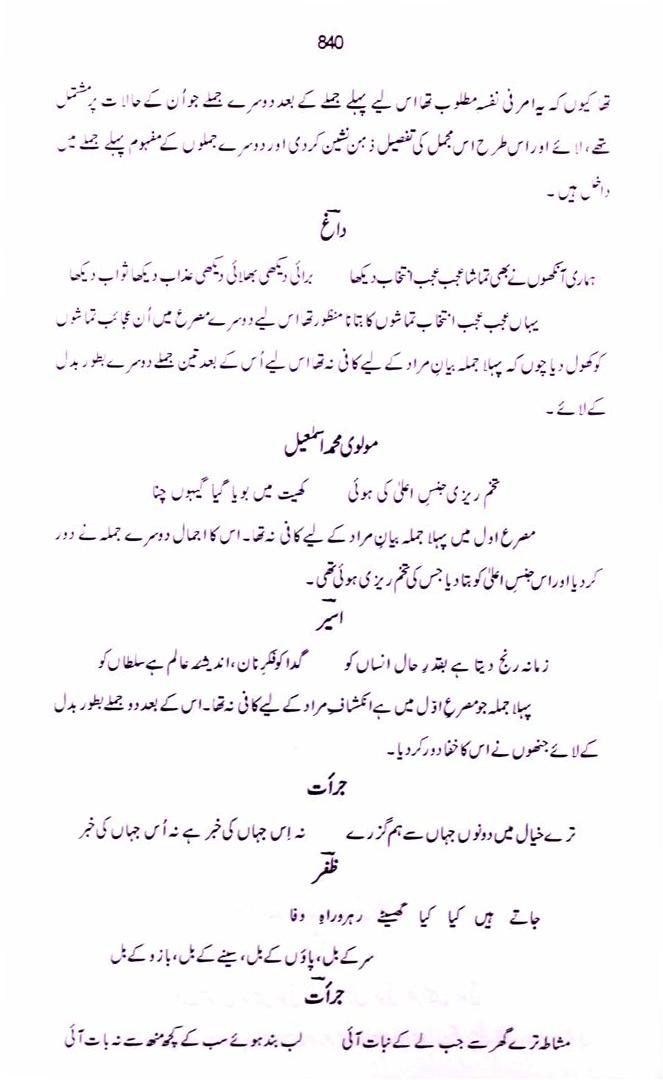 840
تھا کیوں کہ یہ امر فی نفسہٖ مطلوب تھا اس لیے پہلے جملے کے بعد دوسرے جملے جو اُن کے حالات پر مشتمل
تھے، لائے اور اس طرح اس مجمل کی تفصیل ذہن نشین کردی اور دوسرے جملوں کے مفہوم پہلے جملے میں
داخل ہیں۔
داغؔ
ہماری آنکھوں نے بھی تماشا عجب عجب انتخاب دیکھا برائی دیکھی بھلائی دیکھی عذاب دیکھا ثواب دیکھا
یہاں عجب عجب انتخاب تماشوں کا بتانا منظور تھا اس لیے دوسرے مصرع میں اُن عجائب تماشوں
کو کھول دیا چوں کہ پہلا جملہ بیانِ مراد کے لیے کافی نہ تھا اس لیے اُس کے بعد تین جملے دوسرے بطور بدل
کے لائے۔
مولوی محمد اسمٰعیل
تخم ریزی جنسِ اعلیٰ کی ہوئی کھیت میں بویا گیا گیہوں چنا
مصرع اول میں پہلا جملہ بیانِ مراد کے لیے کافی نہ تھا۔ اس کا اجمال دوسرے جملہ نے دور
کردیا اور اس جنسِ اعلیٰ کو بتا دیا جس کی تخم ریزی ہوئی تھی۔
اسیرؔ
زمانہ رنج دیتا ہے بقدرِ حال انساں کو گدا کو فکرِ نان، اندیشۂ عالم ہے سلطاں کو
پہلا جملہ جو مصرعِ اوّل میں ہے انکشافِ مراد کے لیے کافی نہ تھا۔ اس کے بعد دو جملے بطور بدل
کے لائے جنھوں نے اس کا خفا دور کردیا۔
جرأت
ترے خیال میں دونوں جہاں سے ہم گزرے نہ اِس جہاں کی خبر ہے نہ اُس جہاں کی خبر
ظفرؔ
جاتے ہیں کیا کیا گھسیٹے رہروِ راہِ وفا
سر کے بل، پاؤں کے بل، سینے کے بل، بازو کے بل
جرأتؔ
مشاطہ ترے گھر سے جب لے کے نبات آئی لب بند ہوئے سب کے کچھ منھ سے نہ بات آئی